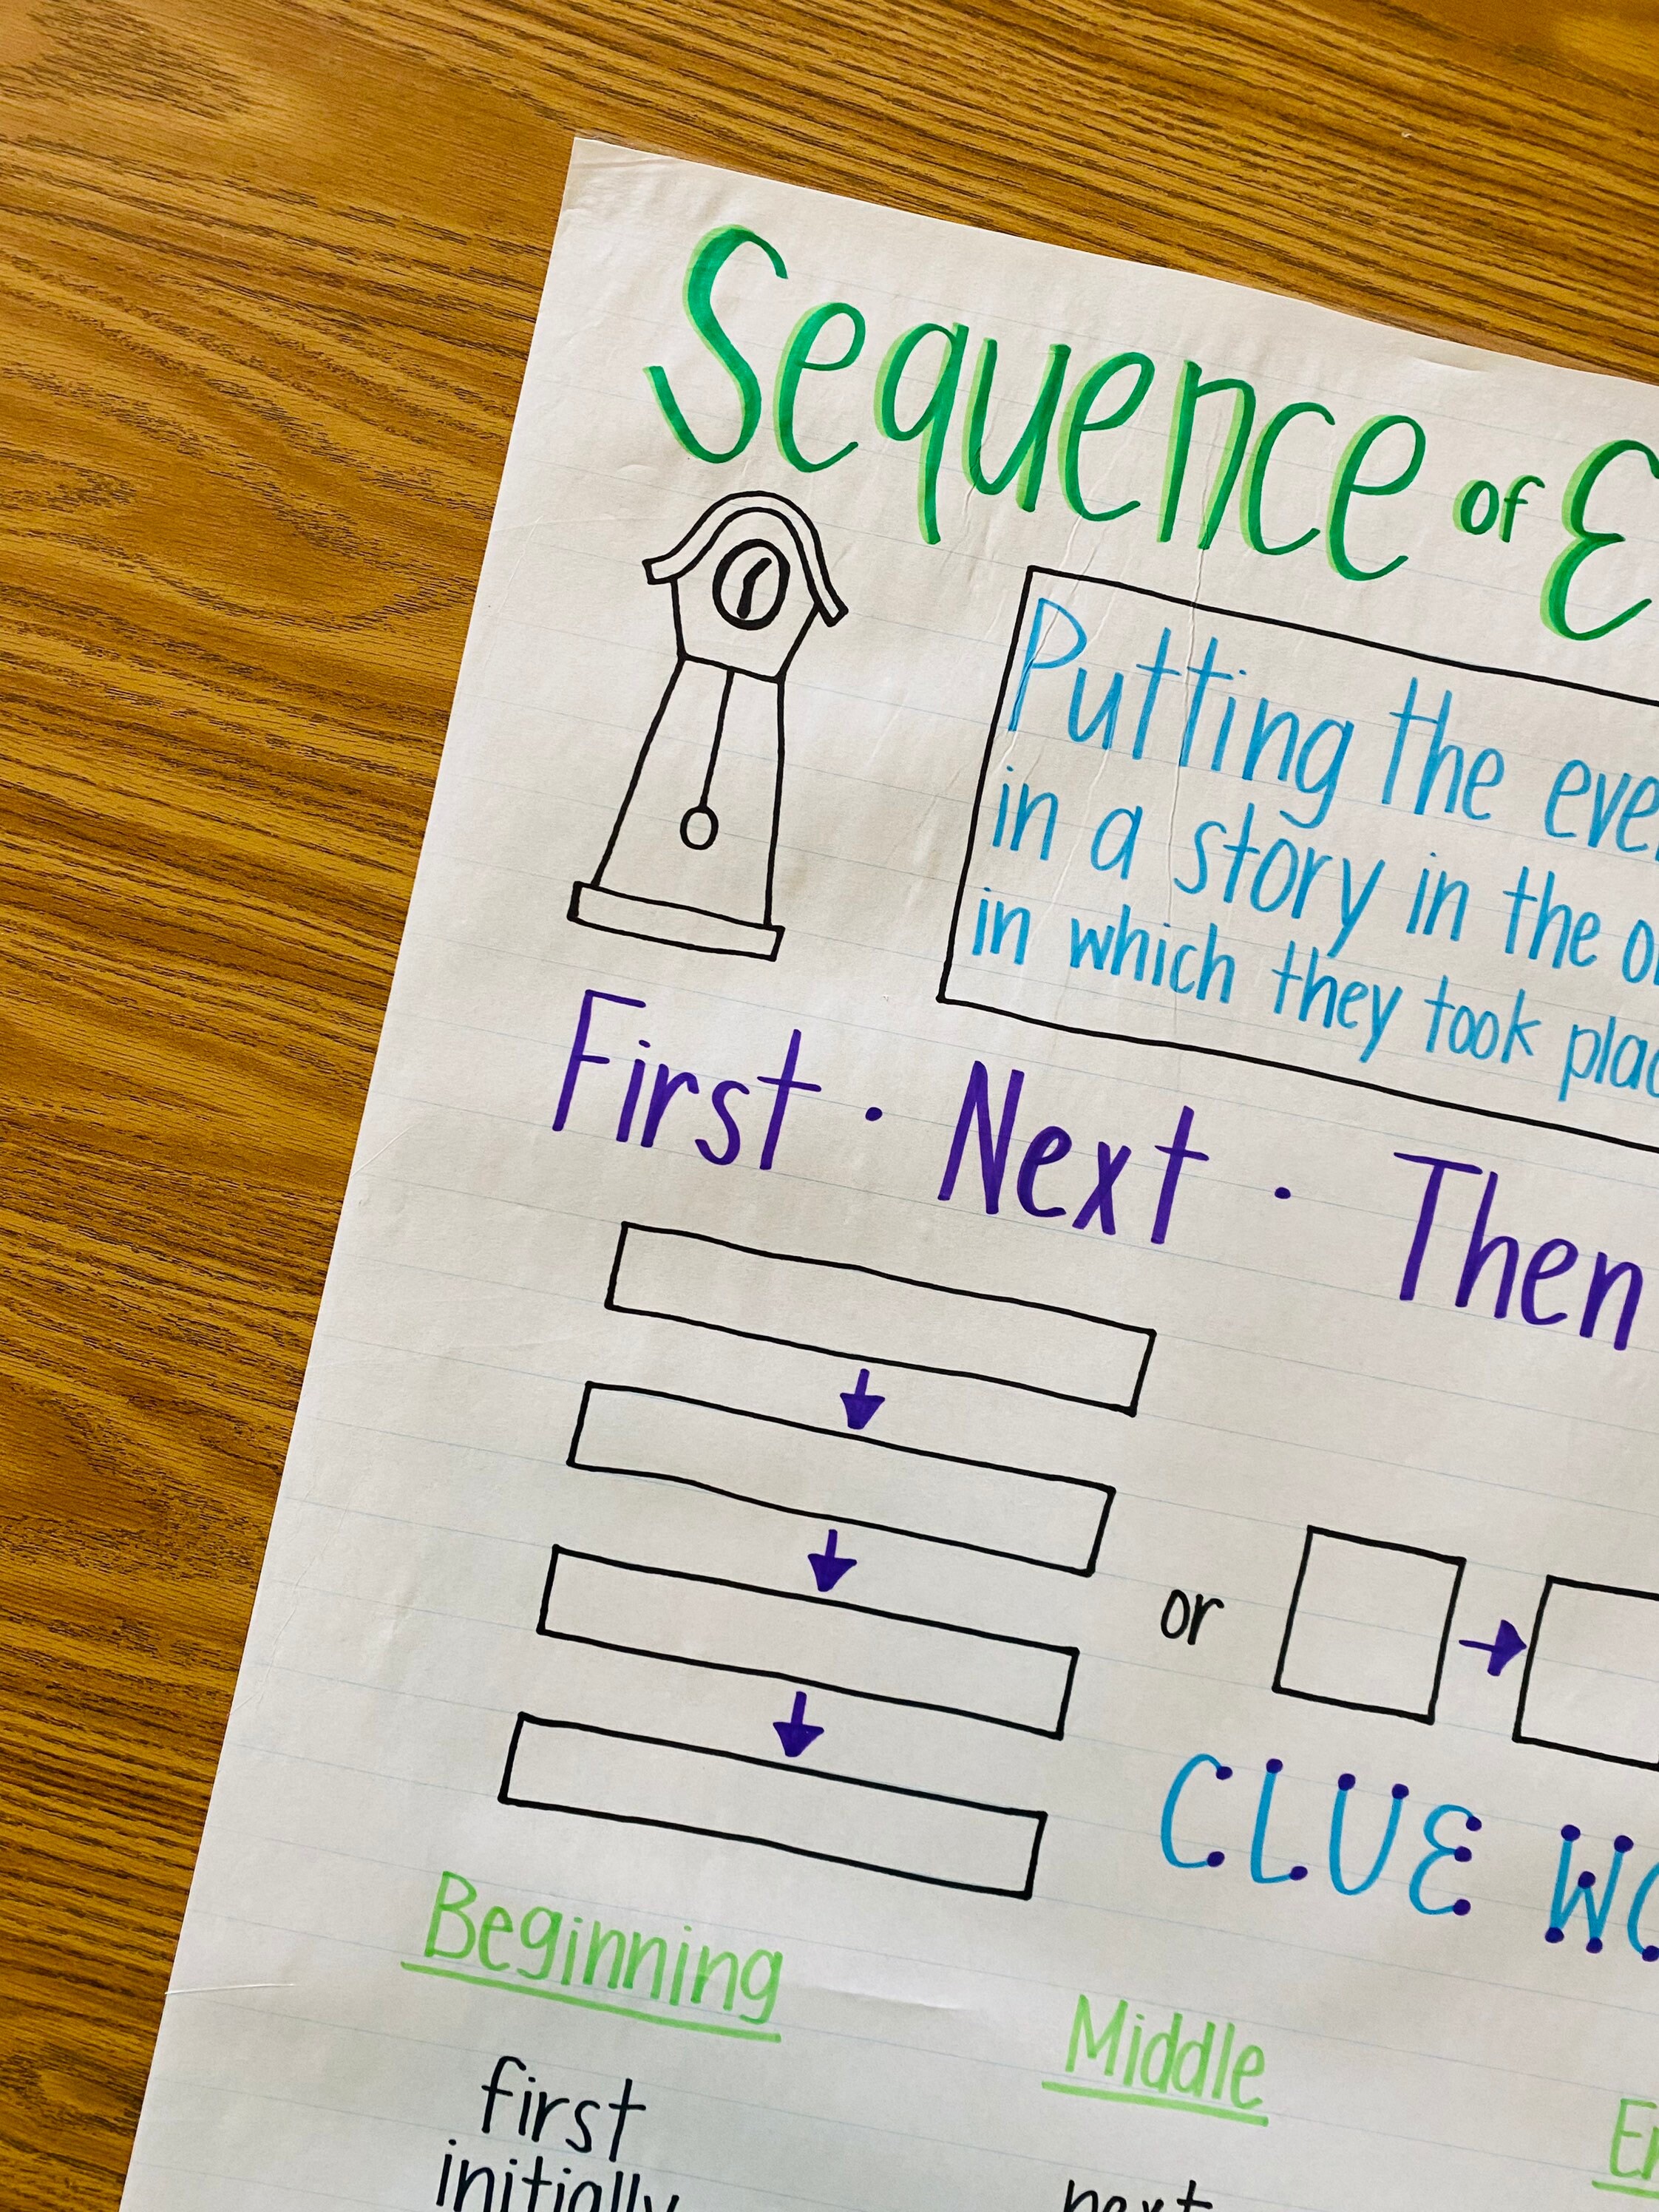 Sequence of E
Putting the eve
in a story in the o
in which they took plac
First · Next · Then
or
CLUE WO
Beginning
Middle
En
first
initially
next